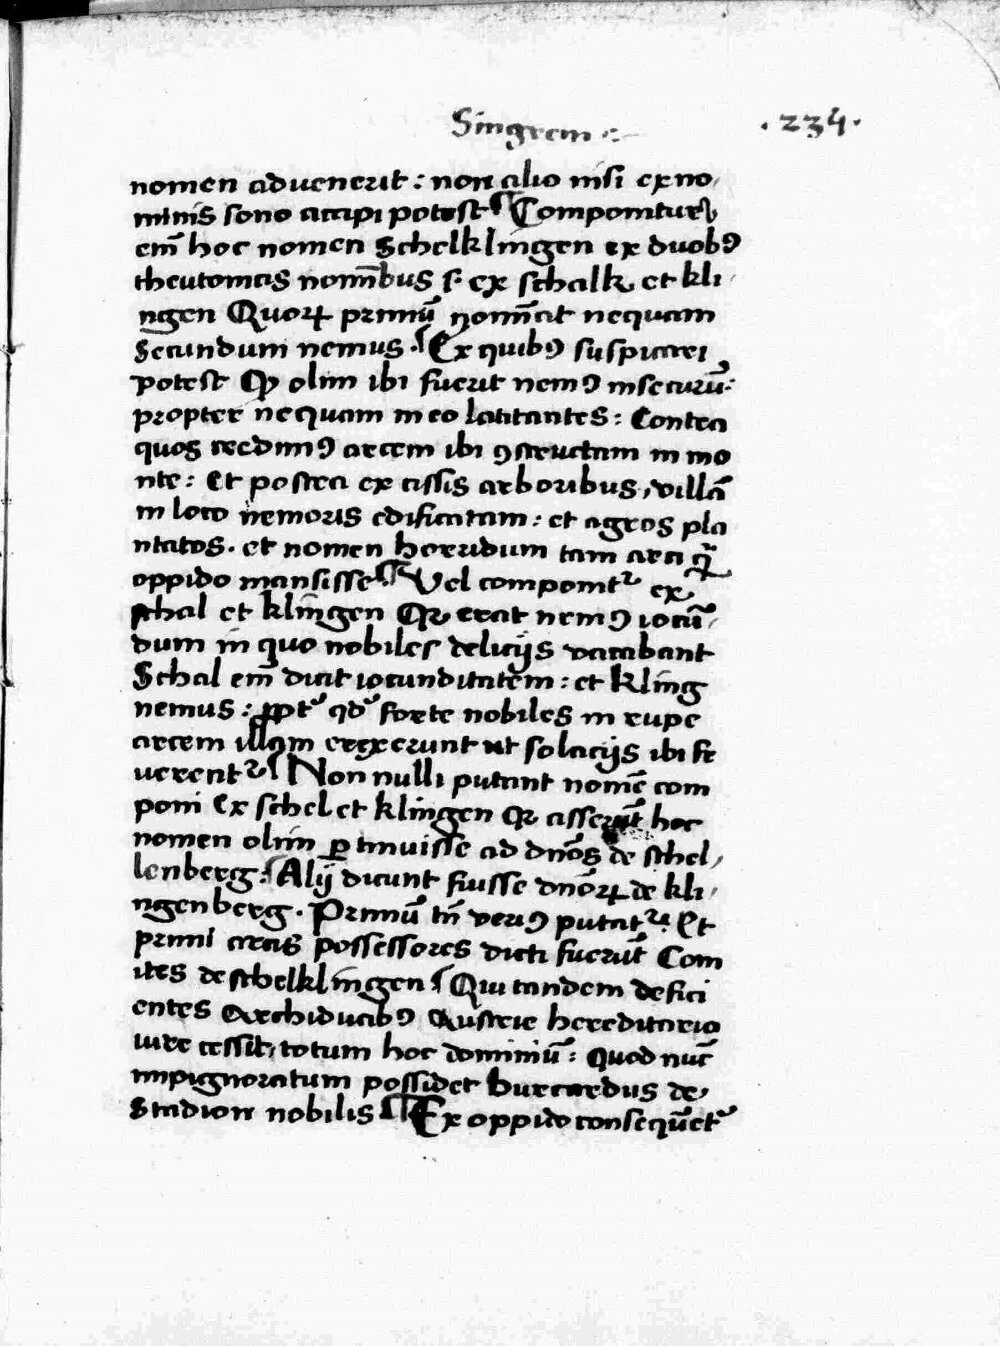 Singrem :~ · 234 ·
nomen aduenerit : non alio nisi ex no
minis sono accipi potest ¶ Componitur
em̄ hoc nomen Schelklingen ex duobꝰ
theutonicis nomībus s. ex schalk et kli
ngen Quoꝝ primū nomīat nequam
Secundum nemus . ¶ Ex quibꝰ suspicari
potest ꝙ olim ibi fuerit nemꝰ insecurū :
propter nequam in eo latitantes : Contra
quos credimꝰ arcem ibi ꝯstructam in mo
nte : Et postea ex cissis arboribus , villā
in loco nemoris edificatam : et agros pla
ntatos . et nomen horridum tam arci qᷓ
oppido mansisse ¶ Vel componit᷑ ex
schal et klingen Qꝛ erat nemꝰ iocū
dum in quo nobiles delicijs vacabant
Schal em̄ dicit iocunditatem : et kling
nemus : ꝓpt᷑ qd᷑ forte nobiles in rupe
arcem illam erexerunt ut solacijs ibi fr
uerent᷑ ¶ Non nulli putant nomē com
poni Ex schel et klingen Qꝛ asserūt hoc
nomen olim ꝑtinuisse ad dn̄os de schel
lenberg : ¶ Alij dicunt fuisse dn̄oꝝ de kli
ngenberg . Primū tn̄ veriꝰ putat᷑ . Et
primi arcis possessores dicti fuerūt Com
ites de schelklingen ¶ Qui tandem defici
entes Archiducibꝰ Austrie hereditario
iure cessit , totum hoc dominiū : Quod nūc
impignoratum possidet burcardus de
Stadion nobilis ¶ Ex oppido consequēt᷑